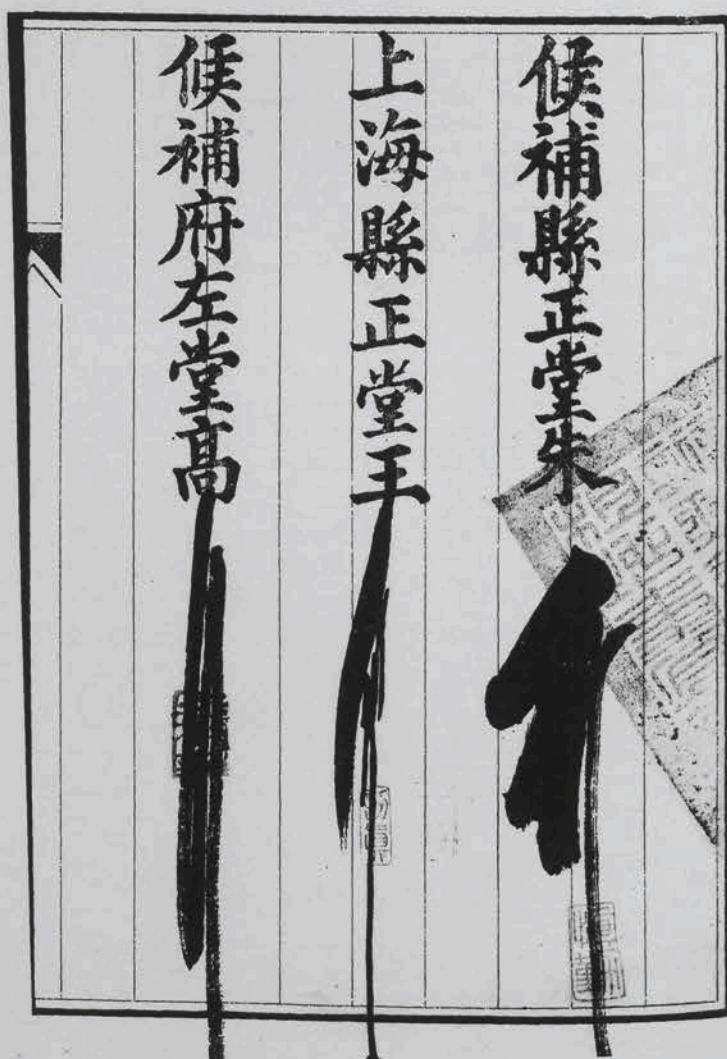 候補縣正堂朱
上海縣正堂王
候補府左堂高